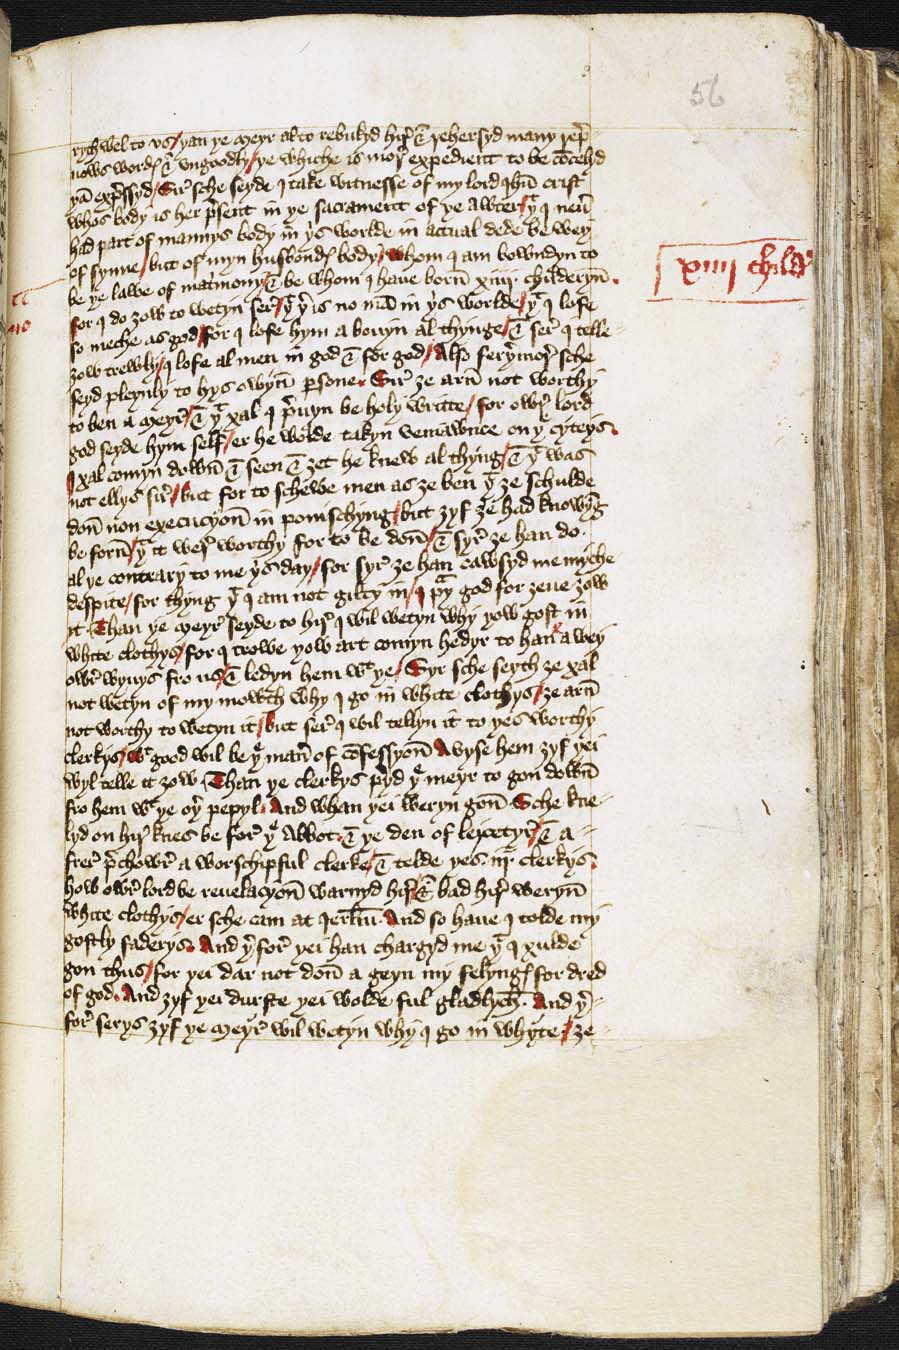 56
rych wel to vs / yan ye Meyr alto rebukyd hir & rehersyd many repre
uows wordys & vngoodly / ye whiche is mor expedient to be concelyd
yan expressyd / Sir sche seyde I take witnesse of my lord ihu crist
whos body is her present in ye sacrament of ye awter / yt I neuer
had part of mannys body in yis worlde in actual dede be wey
of synne / but of myn husbondys body / whom I am bowndyn to
be ye lawe of matrimony / & be whom I haue born xiiii childeryn.
xiiii childer
for I do zow to wetyn ser / yt yer is no man in yis worlde / yt I lofe
so meche as god / for I lofe hym a bouyn al thynge / & ser I telle
zow trewly / I lofe al men in god & for god / Also feryermor sche
seyd pleynly to hys owyn persone. Sir ze arn not worthy
to ben a Meyr / & yt xal I preuyn be holy writte / for owr lord
god seyde hym self / er he wolde takyn veniawnce on ye cyteys.
I xal comyn down & seen & zet he knew al thyng / & yt was
not ellys sir / but for to schewe men as ze ben yt ze schulde
don non execucyon in ponischyng / but zyf ze had knowyng
be forn / yt it wer worthy for to be don / & syr ze han do
al ye contrary to me yis day / for syr ze han cawsyd me myche
despite / for thyng yt I am not gilty in / I pray god for zeue zow
it Than ye Meyr seyde to hir I wil wetyn why yow gost in
white clothys / for I trowe yow art comyn hedyr to han a wey
owr wyuys fro us / & ledyn hem wt ye / Syr sche seyth ze xal
not wetyn of my mowth why I go in white clothys / ze arn
not worthy to wetyn it / but ser I wil tellyn it to yes worthy
clerkys / wt good wil be ye maner of confessyon Avyse hem zyf yei
wyl telle it zow. Than ye clerkys preyd ye meyr to gon down
fro hem wt ye oyer pepyl. And whan yei weryn gon Sche kne-
lyd on hir knes be for ye Abbot. & ye den of leycetyr / & a-
frer prechowr a worschipful clerke / & telde yes iii clerkys.
how owr lord be reuelacyon warnyd hir & bad hir weryn
white clothys / er sche cam at ierlm. And so haue I tolde my
gostly faderys. And yerfor yei han chargyd me yt I xulde
gon thus / for yei dar not don a geyn my felyngys for dred
of god. And zyf yei durste yei wolde ful gladlych. And yer-
for serys zyf ye Meyr wil wetyn why I go in whyte / ze-